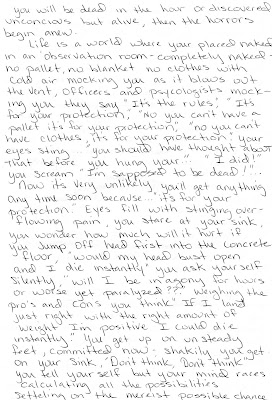 you will be dead in the hour or discovered
unconcious but alive, then the horrors
begin anew.
Life is a world where your placed naked
in an observation room - completely naked -
no pallet, no blanket no clothes with
cold air mocking you as it blows out
the vent, officers and psycologists mock-
ing you they say "It's the rules," "It's
for your protection," "No you can't have a
pallet it's for your protection," "no you can't
have clothes, it's for your protection," your
eyes sting... "you should have thought about
that before you hung your..." "I did!"
you scream "I'm sapposed to be dead!"...
Now its very unlikely you'll get anything
any time soon because... "it's for your
protection." Eyes fill with stinging, over-
flowing pain, you stare at your sink,
you wonder how much will it hurt if
you jump off head first into the concrete
floor, "would my head bust open
and I die instantly" you ask yourself
silently, "will I be in agony for hours
or worse yet paralyzed???" weighing the
pro's and con's you think "If I land
just right with the right amount of
weight I'm positive I could die
instantly." You get up on unsteady
feet, committed now, shakily you get
on your sink, "Don't think, Don't think"
you tell yourself but your mind races
calculating all the possibilities
setteling on the merest possible chance